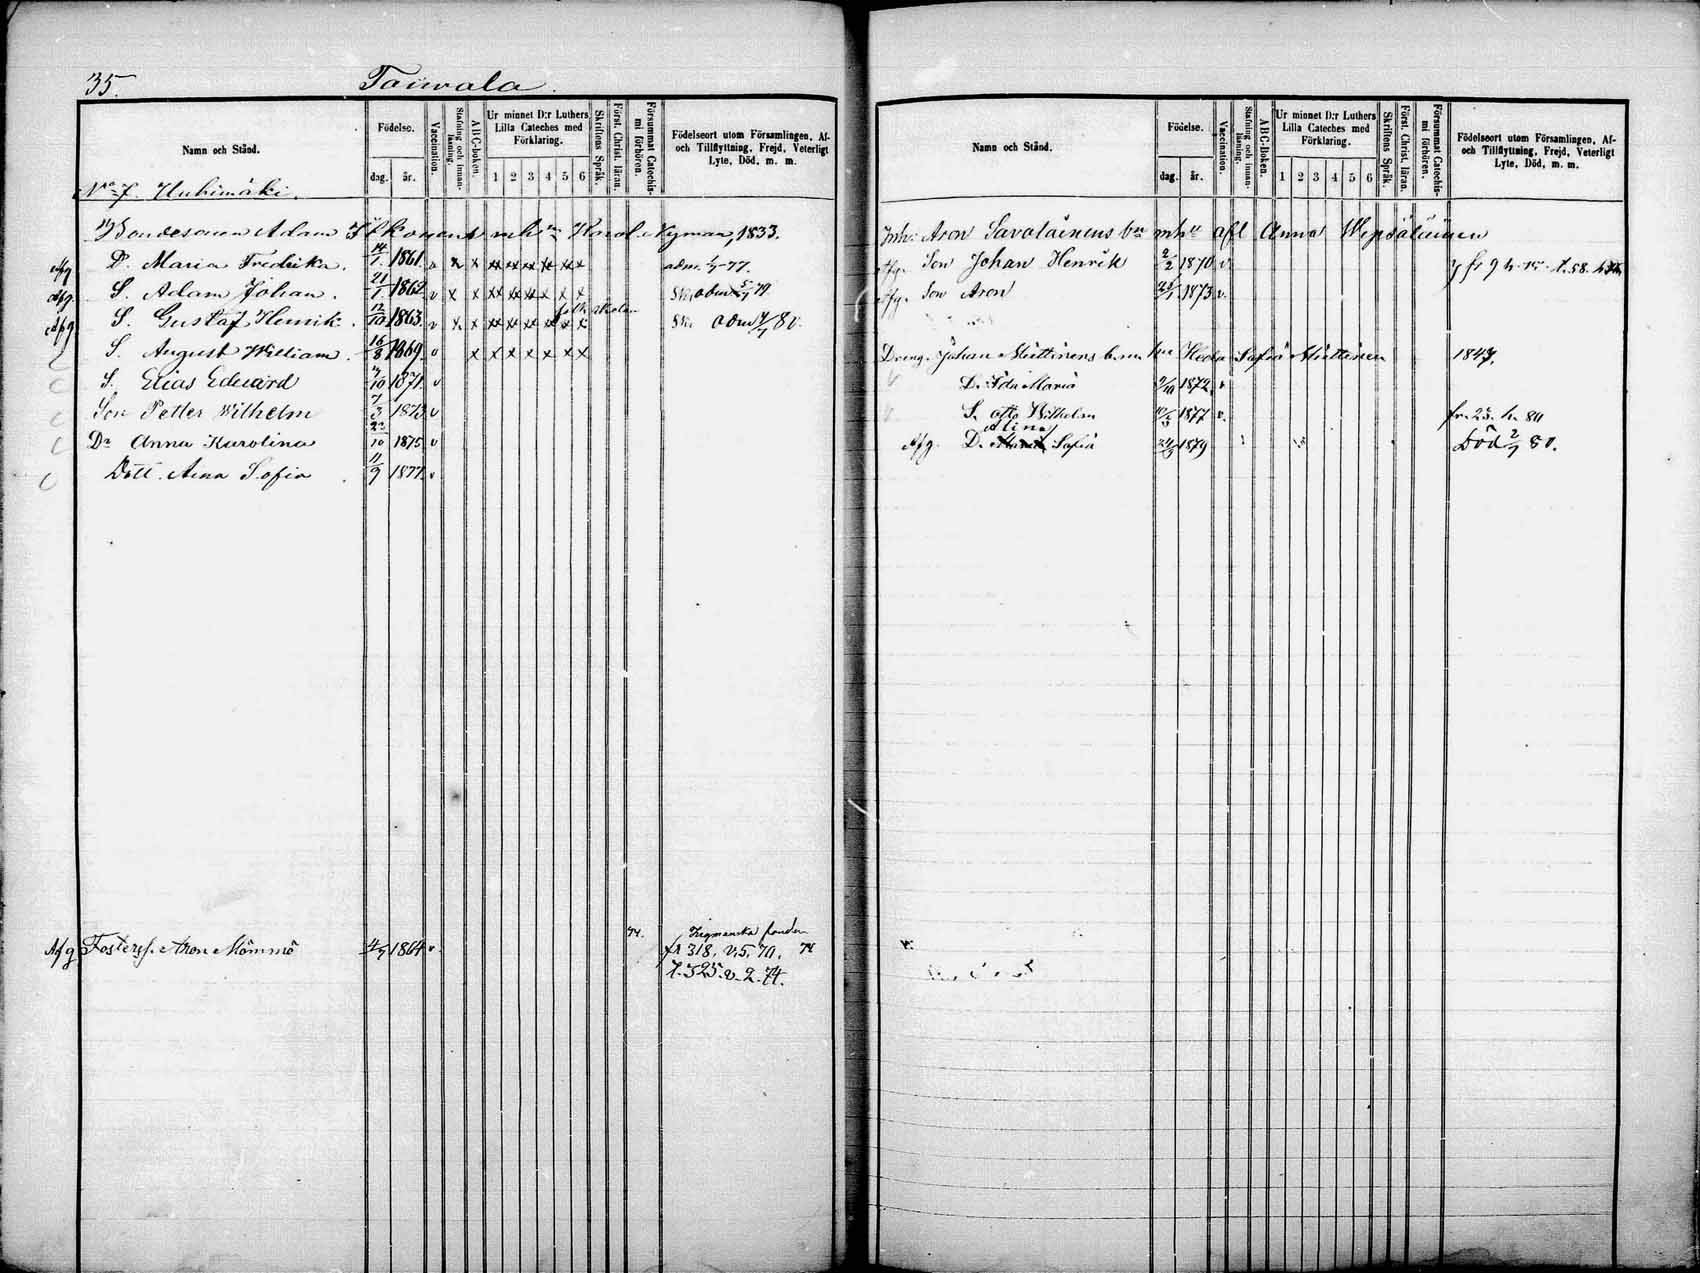 35. Taivala.
Namn och Stånd.
Födelse.
dag. år.
Vaccination.
Stafning och innan-läsning.
ABC-boken.
Ur minnet D:r Luthers Lilla Cateches med Förklaring.
1 2 3 4 5 6
Skriftens Språk.
Först. Christ. läran.
Försummat Catechis-mi förhören.
Födelseort utom Församlingen, Af- och Tillflyttning, Frejd, Veterligt Lyte, Död, m. m.
No 7. Huhimäki.
Bondesonen Adam Karol. Nyman, 1833.
D. Maria Fredrika. 14/1 1861 v x x xx xx xx xx xx adm. 77.
afg. S. Adam Johan. 21/1 1862 v x x xx xx xx x x x adm 79
Afg. S. Gustaf Henrik. 12/10 1863. v x x xx xx xx x x x folkskolan adm 80.
S. August William. 16/8 1869. v x x x x x x x
S. Elias Edward 1871. v
Son Petter Wilhelm 7/3 1873 v
Dr Anna Karolina 23/10 1875 v
Dott. Aina Sofia 11/9 1877. v
74.
Afg Fosters. Aron Mömmö 4/5 1864 v. fr 318. v. 5. 70. 74
t. 525. v. 2. 74.
Namn och Stånd.
Födelse.
dag. år.
Vaccination.
Stafning och innan-läsning.
ABC-Boken.
Ur minnet D:r Luthers Lilla Cateches med Förklaring.
1 2 3 4 5 6
Skriftens Språk.
Först. Christ. läran.
Försummat Catechis-mi förhören.
Födelseort utom Församlingen, Af- och Tillflyttning, Frejd, Veterligt Lyte, Död, m. m.
Inh. Aron Savolainens bn mhu afl Anna Wepsäläinen
Afg. Son Johan Henrik 2/2 1870 v
Afg. Son Aron 1873 v.
Dreng. Johan Muttinens b.m. hu Heda Sofia Muttinen 1847.
D. Ida Maria 9/10 1872. v
S. Otto Wilhelm 1877 v. fr. 25. h. 80
Alina
Afg. D. Sofia 1879 Död 2/7 80.